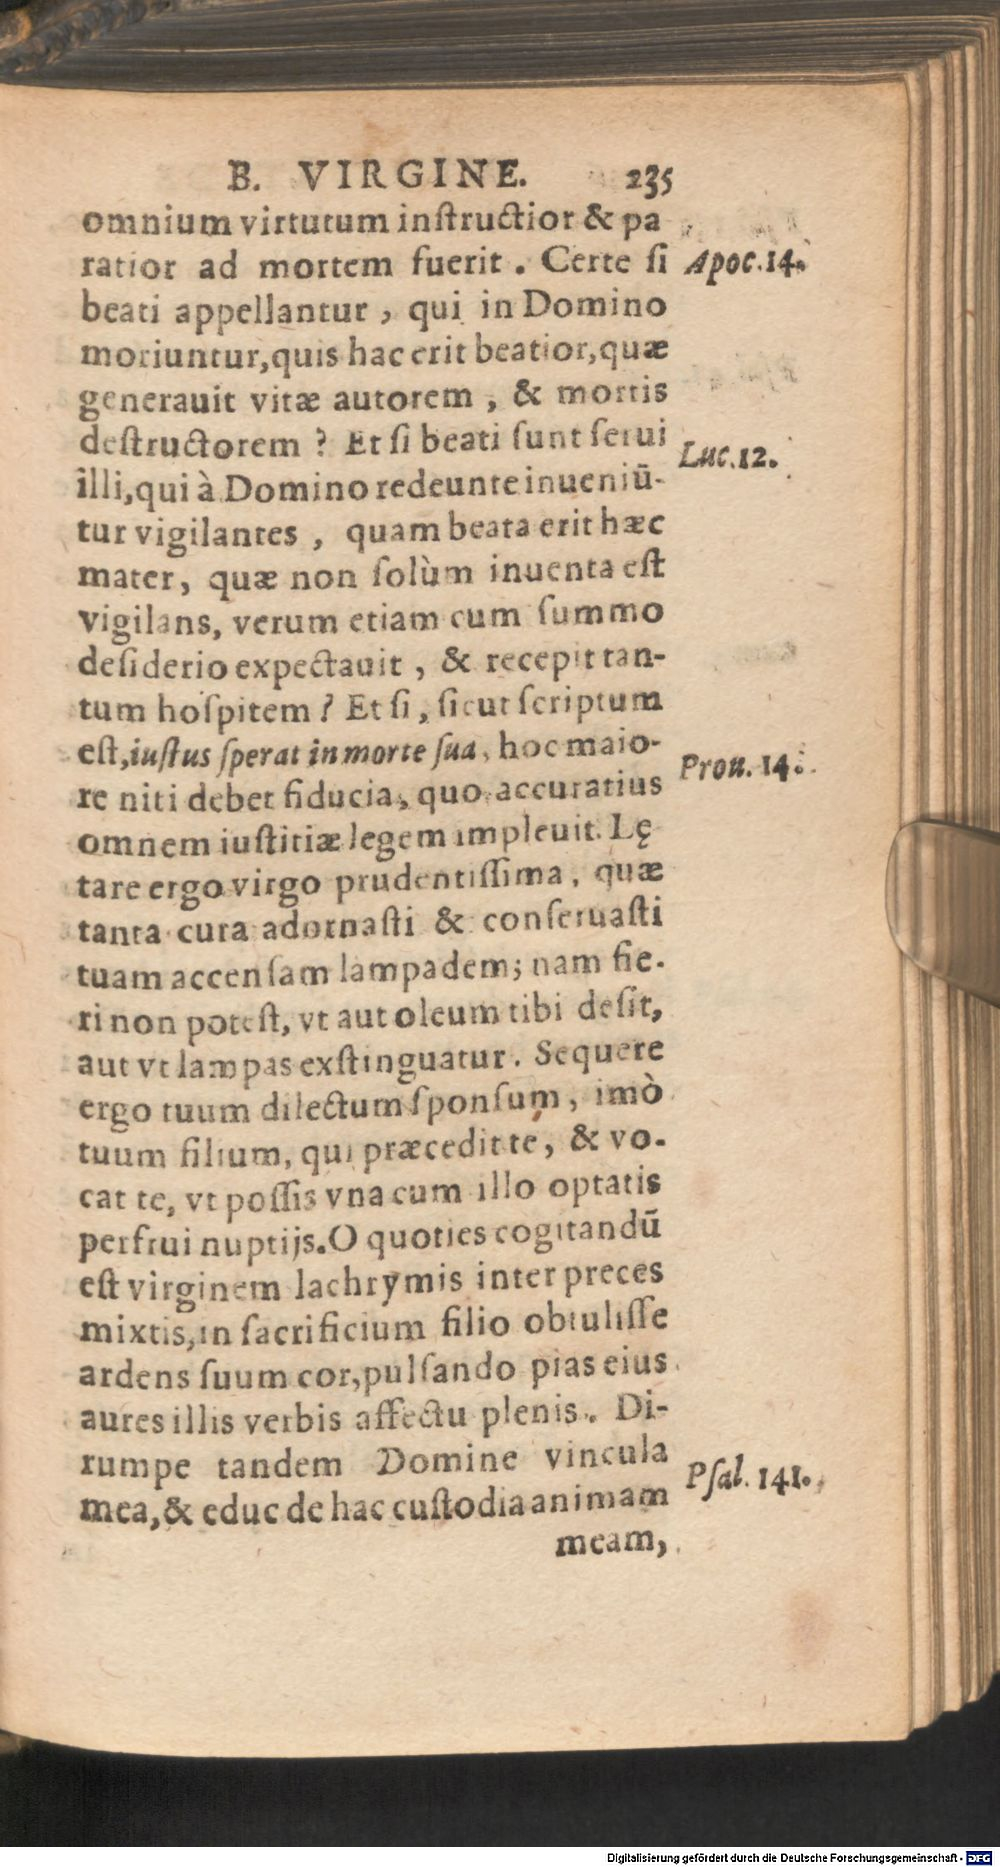 B. VIRGINE. 235
omnium virtutum inſtructior & pa
ratior ad mortem fuerit. Certe ſi
Apoc. 14.
beati appellantur, qui in Domino
moriuntur, quis hac erit beatior, quæ
generauit vitæ autorem, & mortis
deſtructorem? Et ſi beati ſunt ſerui
Luc. 12.
illi, qui à Domino redeunte inueniū-
tur vigilantes, quam beata erit hæc
mater, quæ non ſolùm inuenta eſt
vigilans, verum etiam cum ſummo
deſiderio expectauit, & recepit tan-
tum hoſpitem? Et ſi, ſicut ſcriptum
eſt, iuſtus ſperat in morte ſua, hoc maio-
Prou. 14.
re niti debet fiducia, quo accuratius
omnem iuſtitiæ legem impleuit. Lę
tare ergo virgo prudentiſſima, quæ
tanta cura adornaſti & conſeruaſti
tuam accenſam lampadem; nam fie-
ri non poteſt, vt aut oleum tibi deſit,
aut vt lampas exſtinguatur. Sequere
ergo tuum dilectum ſponſum, imò
tuum filium, qui præcedit te, & vo-
cat te, vt poſſis vna cum illo optatis
perfrui nuptijs. O quoties cogitandū
eſt virginem lachrymis inter preces
mixtis, in ſacrificium filio obtuliſſe
ardens ſuum cor, pulſando pias eius
aures illis verbis affectu plenis. Di-
rumpe tandem Domine vincula
Pſal. 141.
mea, & educ de hac cuſtodia animam
meam,
Digitalisierung gefördert durch die Deutsche Forschungsgemeinschaft - DFG